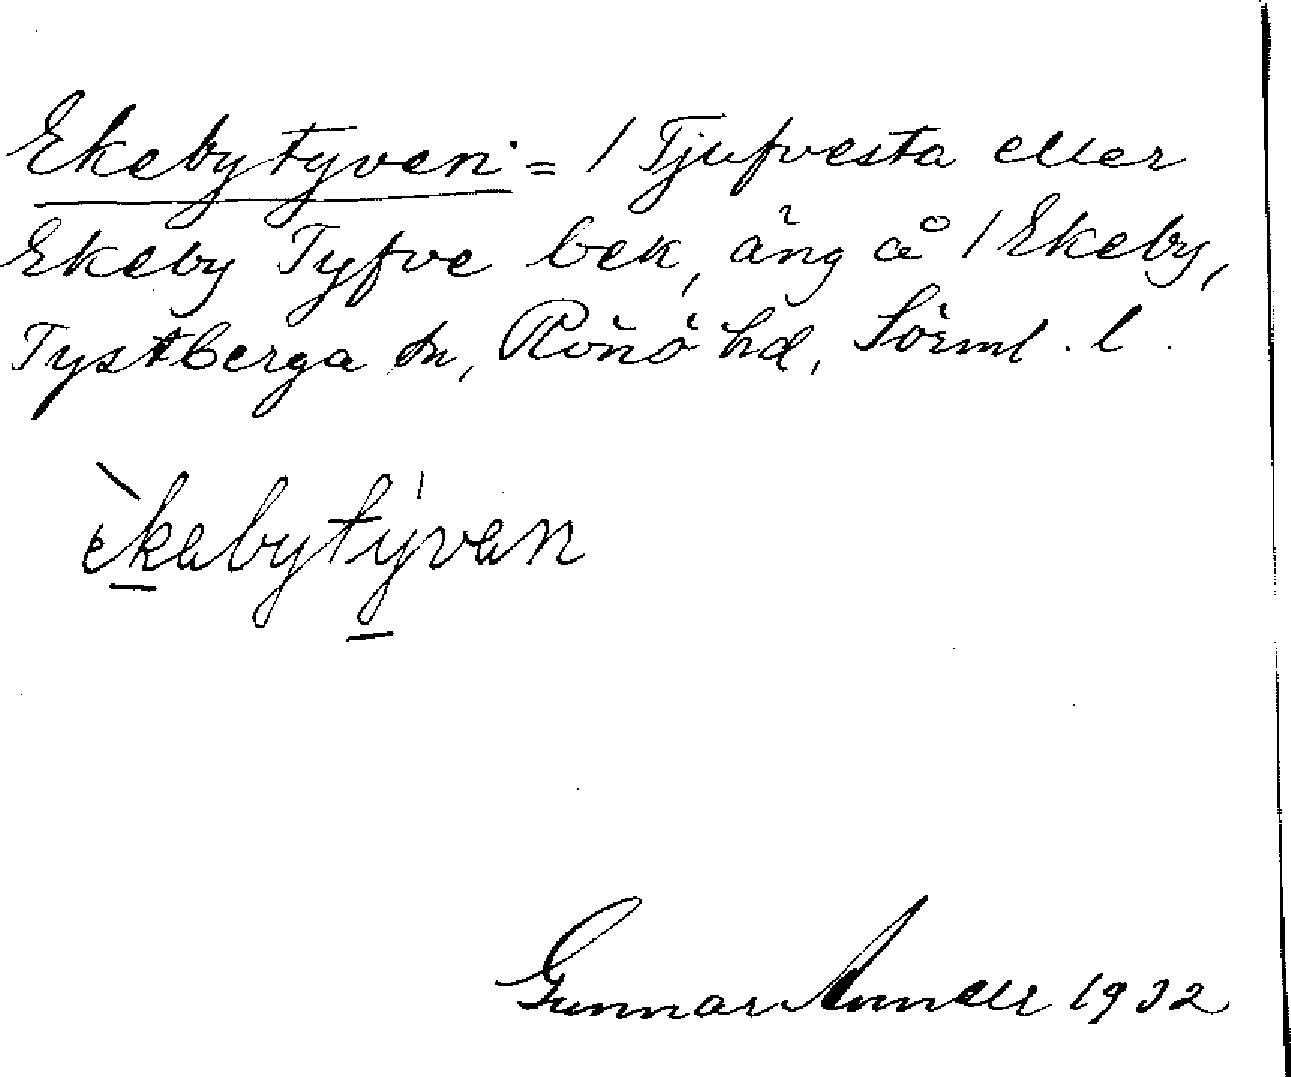 Ekebytyven = / Tjufvesta eller
Ekeby Tyfve bek, äng å / Ekeby,
Tystberga sn, Rönö hd, Sörml. l.
èkebytýven
Gunnar Annell 1932